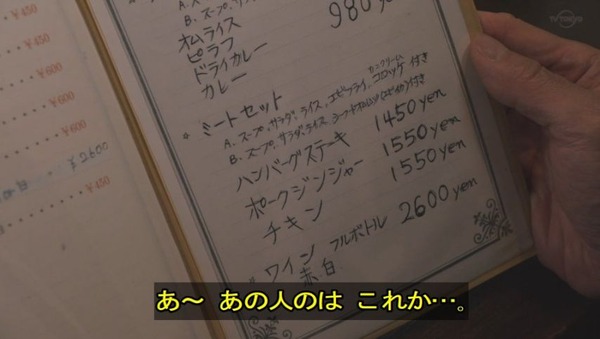 TV TOKYO
¥450
¥600
¥600
¥2600
¥450
B. スープ、サラダ、
980yen
オムライス
ピラフ
ドライカレー
カレー
ミートセット
A. スープ、サラダ、ライス、エビフライ、カニクリームコロッケ付き
B. スープ、サラダ、ライス、
ハンバーグステーキ 1450yen
ポークジンジャー 1550yen
チキン 1550yen
ワイン フルボトル 2600yen
赤白
あ〜 あの人のは これか…。